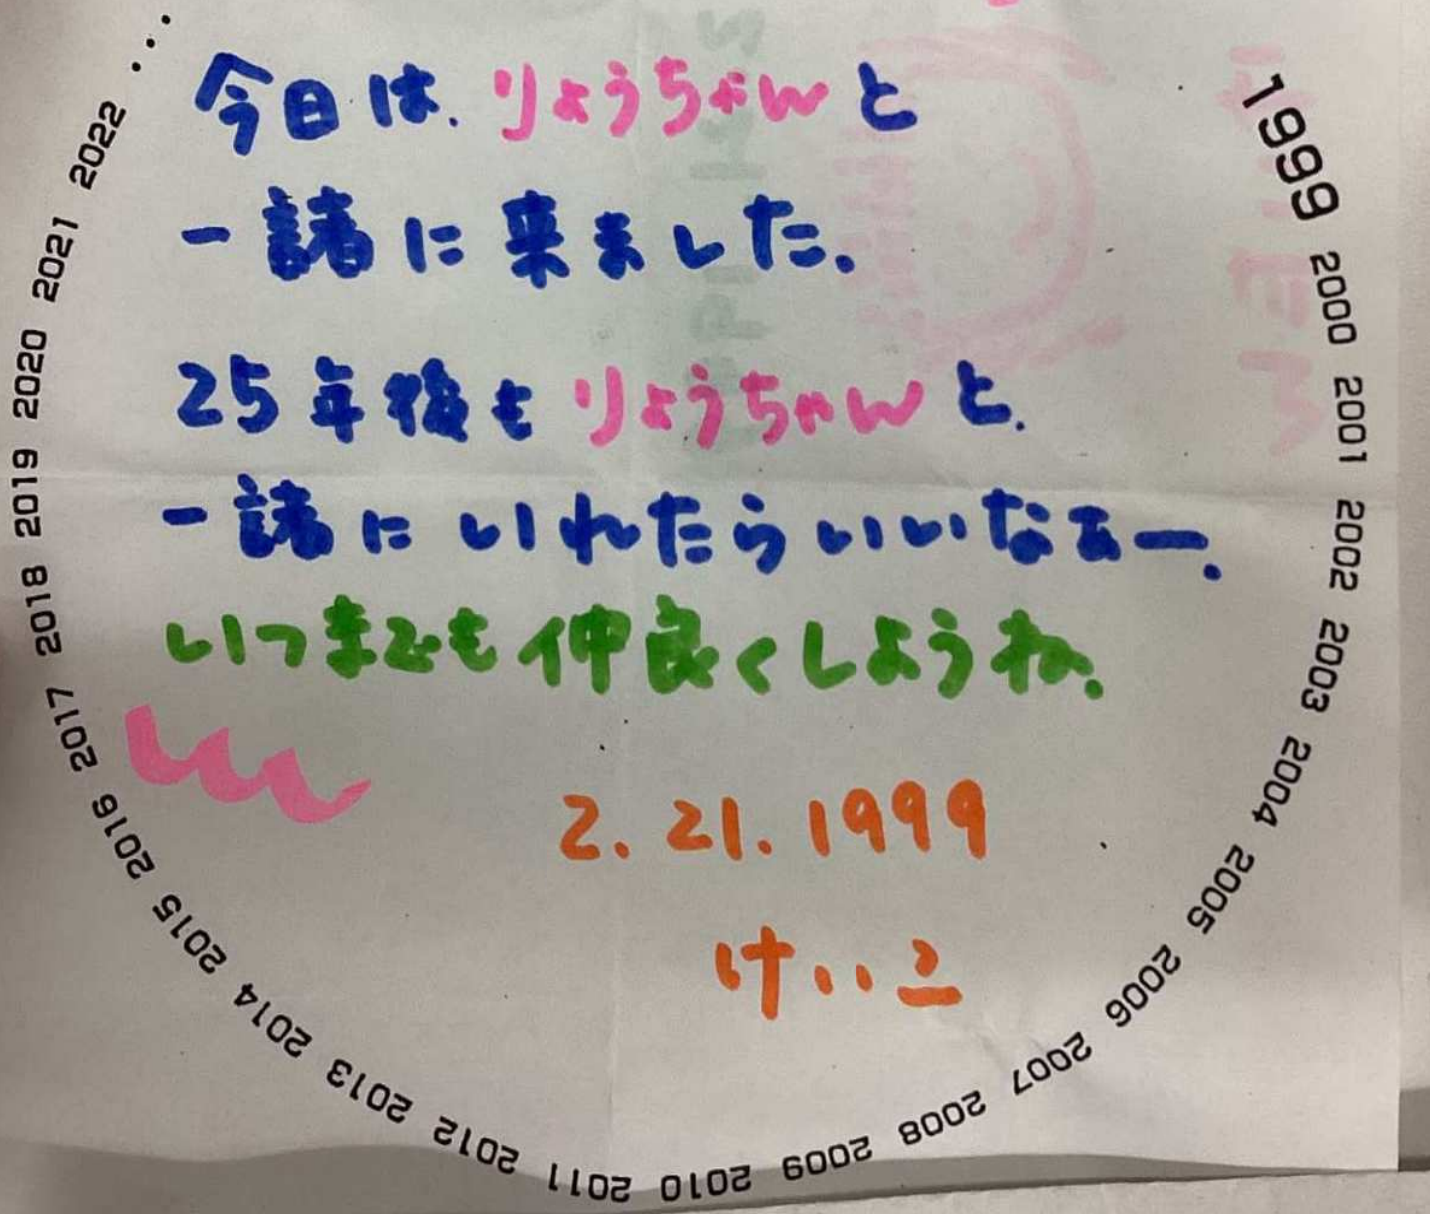 今日は.りょうちゃんと
一諸に来ました.
25年後もりょうちゃんと.
一諸にいれたらいいなぁー.
いつまでも仲良くしようね.
2. 21. 1999
けいこ
1999 2000 2001 2002 2003 2004 2005 2006 2007 2008 2009 2010 2011 2012 2013 2014 2015 2016 2017 2018 2019 2020 2021 2022 ...